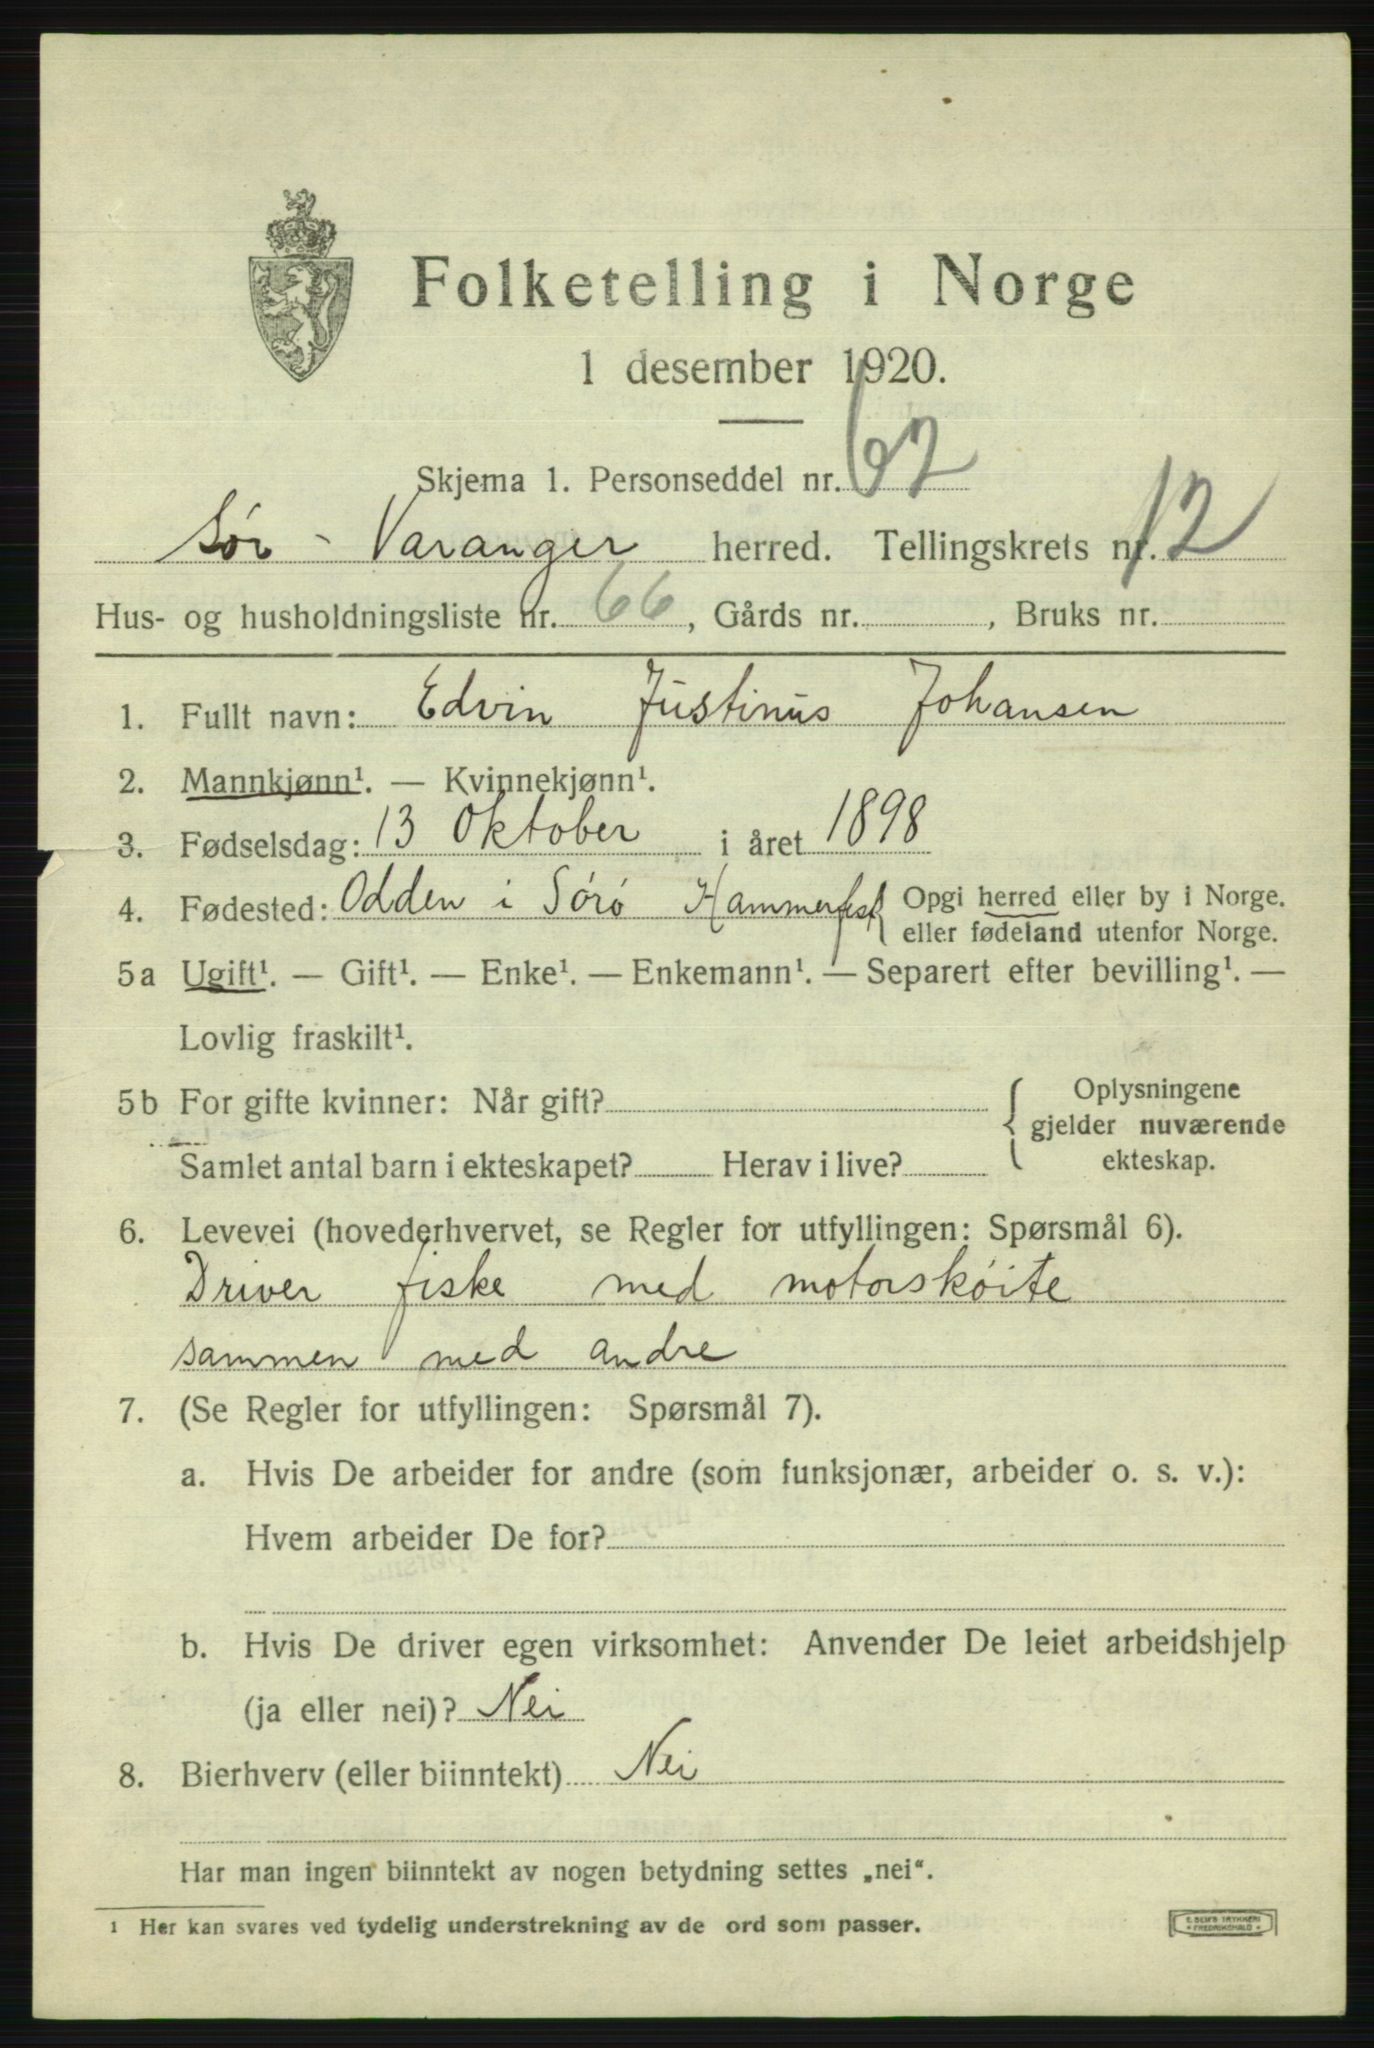 Folketelling i Norge
1 desember 1920.
Skjema 1. Personseddel nr. 62
Sør - Varanger herred. Tellingskrets nr. 12
Hus- og husholdningsliste nr. 66, Gårds nr. , Bruks nr.
1. Fullt navn: Edvin Justinus Johansen
2. Mannkjønn¹. — Kvinnekjønn¹.
3. Fødselsdag: 13 Oktober i året 1898
4. Fødested: Odden i Sørø Hammerfest { Opgi herred eller by i Norge.
eller fødeland utenfor Norge.
5a Ugift¹. — Gift¹. — Enke¹. — Enkemann¹. — Separert efter bevilling¹. —
Lovlig fraskilt¹.
5b For gifte kvinner: Når gift? { Oplysningene
gjelder nuværende
ekteskap.
Samlet antal barn i ekteskapet? Herav i live?
6. Levevei (hovederhvervet, se Regler for utfyllingen: Spørsmål 6).
Driver fiske med motorskøite
sammen med andre
7. (Se Regler for utfyllingen: Spørsmål 7).
a. Hvis De arbeider for andre (som funksjonær, arbeider o. s. v.):
Hvem arbeider De for?
b. Hvis De driver egen virksomhet: Anvender De leiet arbeidshjelp
(ja eller nei)? Nei
8. Bierhverv (eller biinntekt) Nei
Har man ingen biinntekt av nogen betydning settes „nei“.
¹ Her kan svares ved tydelig understrekning av de ord som passer.